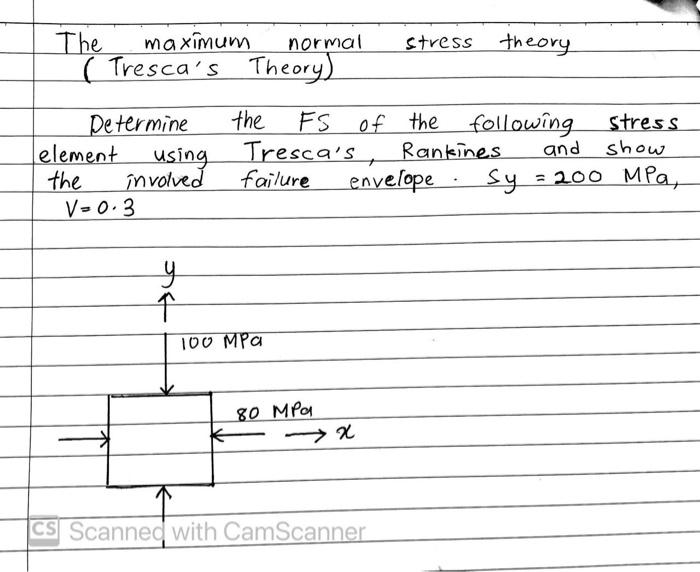 The maximum normal stress theory
( Tresca's Theory)
Determine the FS of the following stress
element using Tresca's, Rankines and show
the involved failure envelope. Sy = 200 MPa,
V=0.3
y
100 MPa
80 MPa
x
CS Scanned with CamScanner